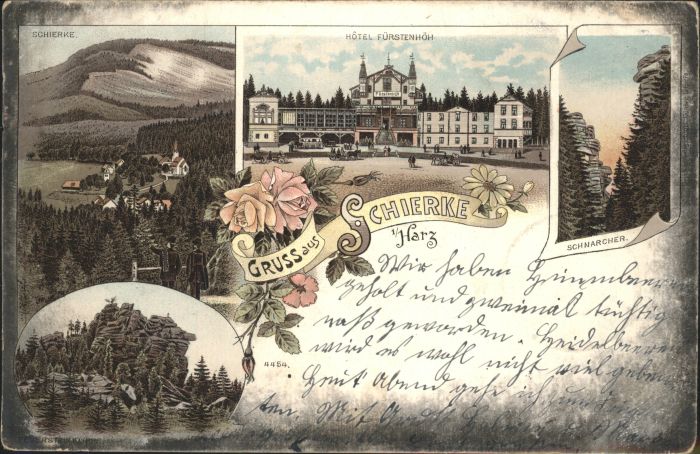 SCHIERKE.
HÔTEL FÜRSTENHÖH
SCHNARCHER.
GRUSS aus SCHIERKE
i/Harz
4454.
Wir haben Himmbeeren
geholt und zweimal tüchtig
naß geworden. Heidelbeeren
wird es wohl nicht viel geben
Heut Abend geh ich
ten. Mit